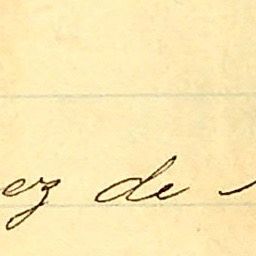 ez de